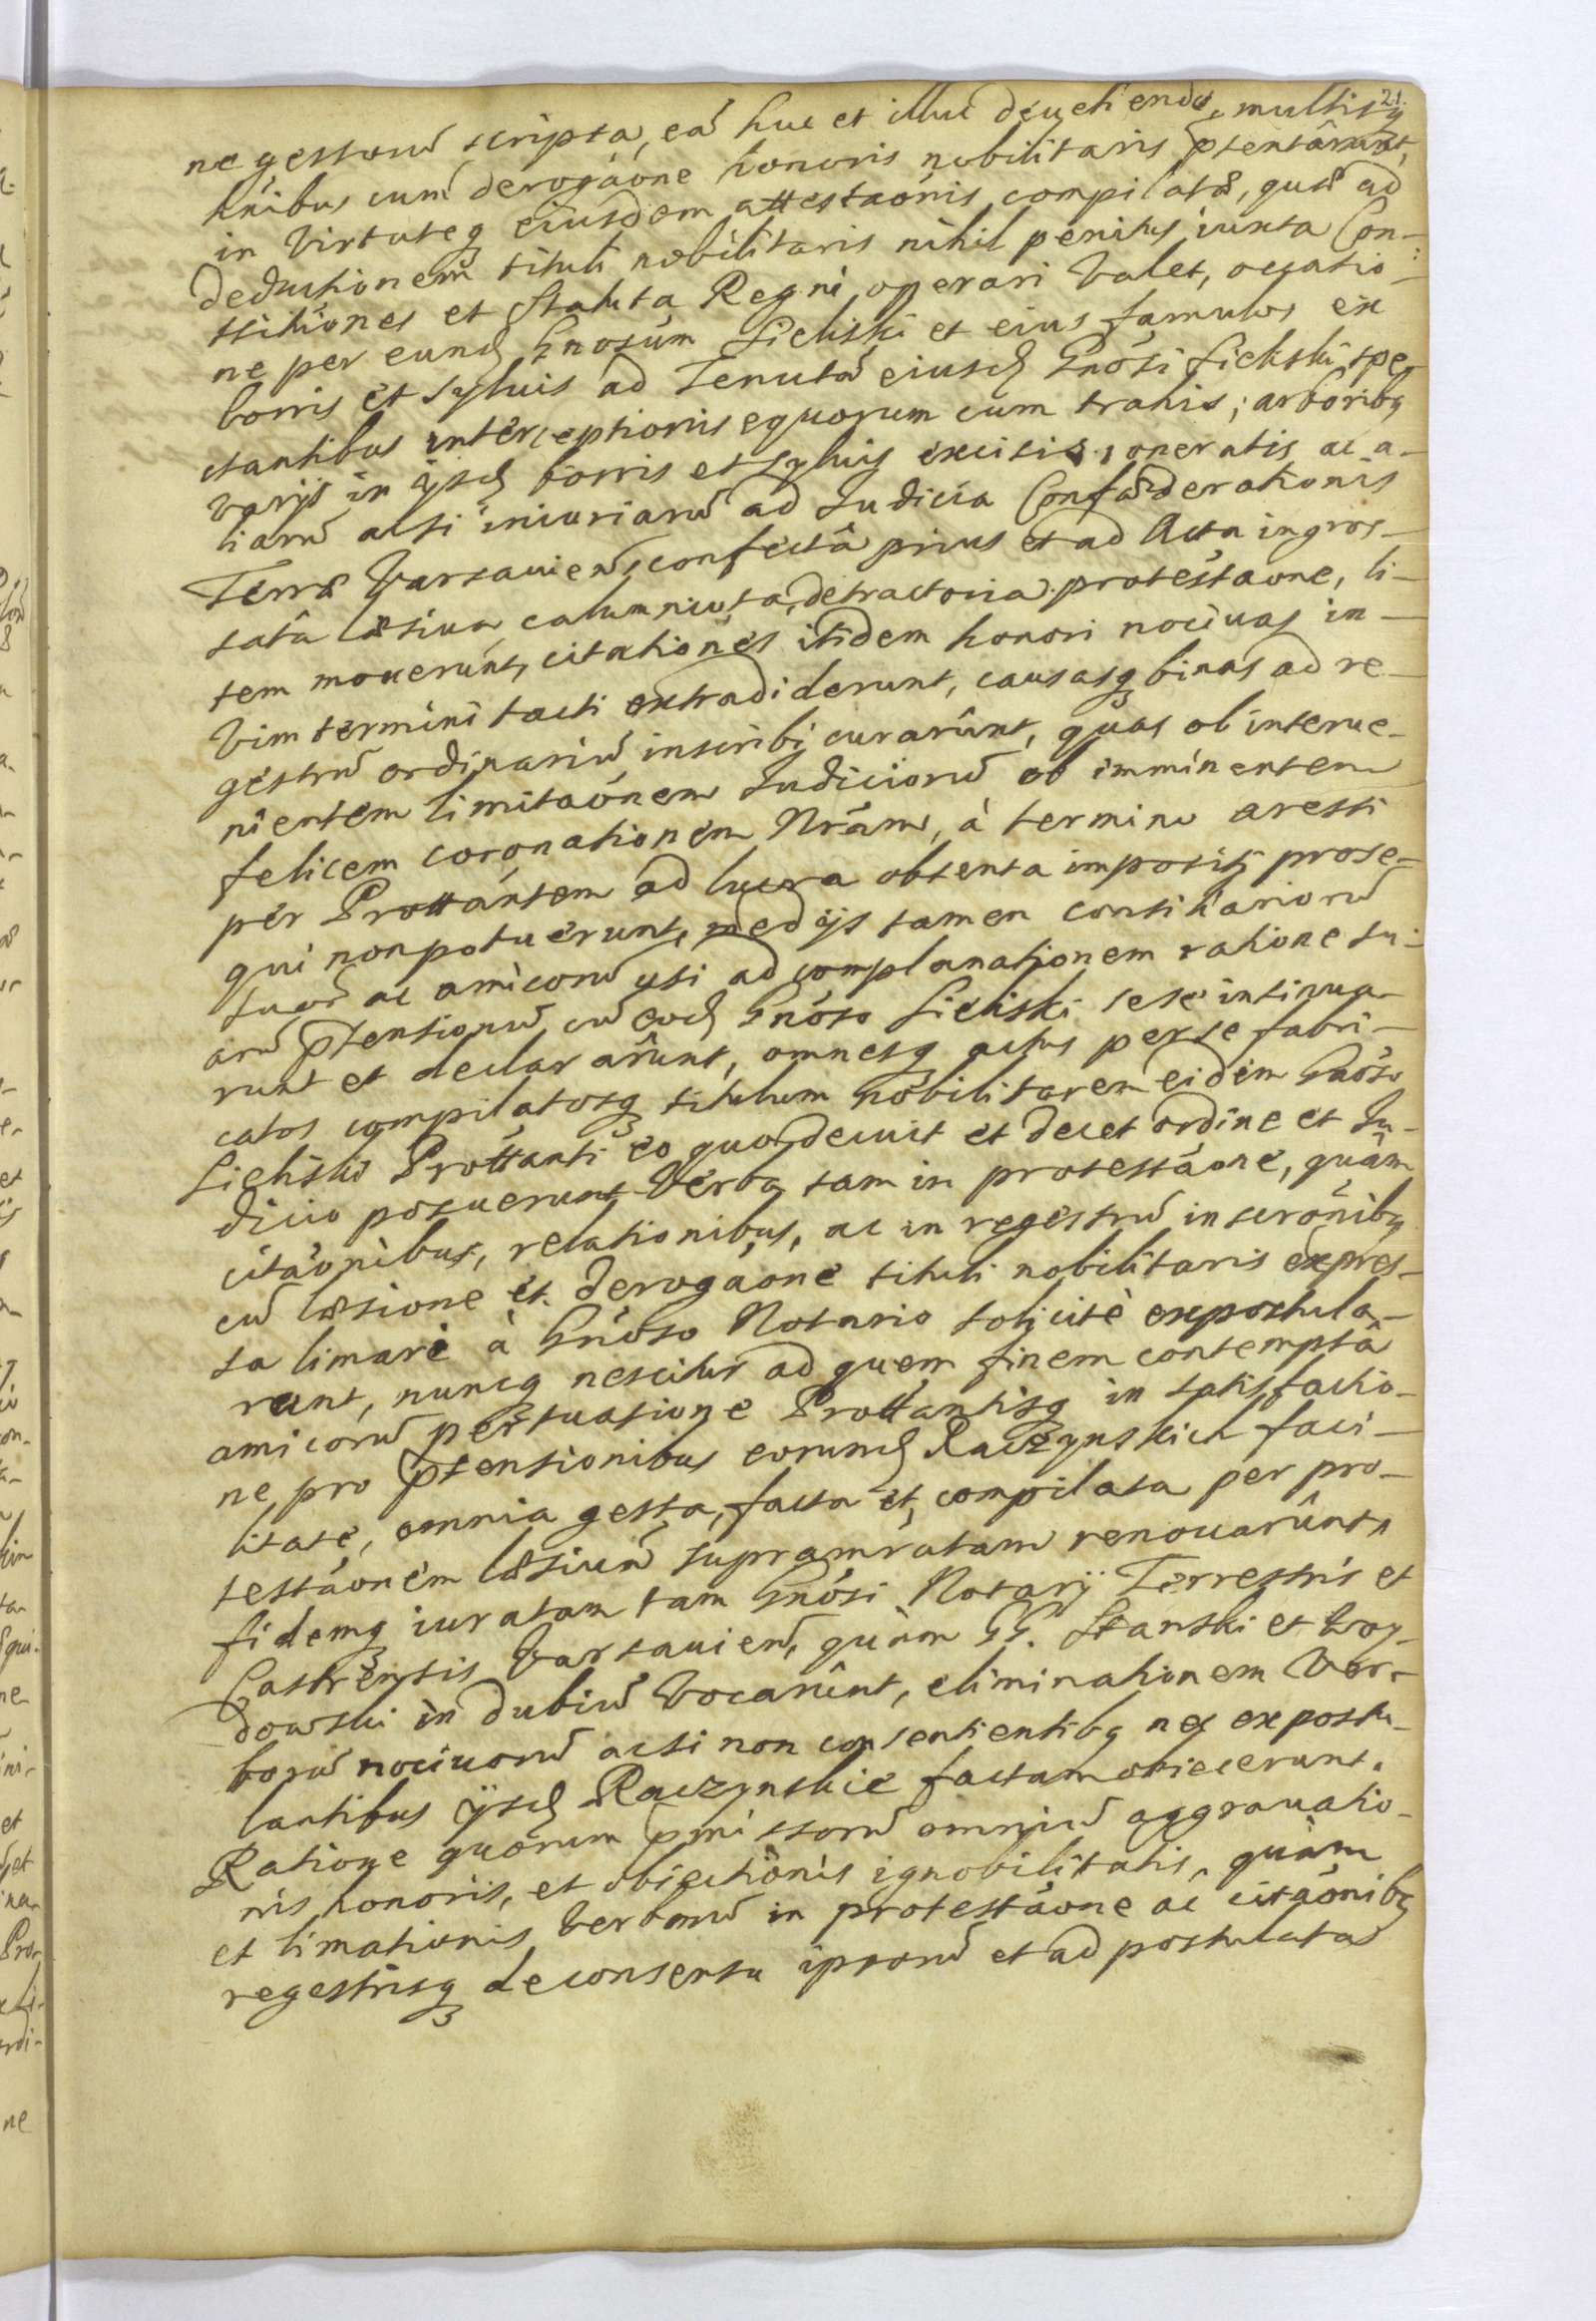 21.
ne gestorũ scripta, eã huc et illuc deuehendo, multisq
hnibus cum derogãone honoris nobilitaris ptentârunt,
in Virtuteq eiusdem attestaõnis compilatæ, quæ ad
deductionem tituli nobilitaris nihil penitus iuxta Con-
stitutiones et Statuta Regni operari Valet, occasio-
ne per eund Gnosum Sielski et eius famulos ex
borris et syluis ad Tenutã eiusd Gnósi Sielski spe-
ctantibus interceptionis equorum cum trahis, arboribq
varijs in ijsd borris et syluis excisis, oneratis ac a-
liarũ acsi iniuriarũ ad Iudicia Confæderationis
Terræ Varsauień, confectâ prius et ad Acta ingros-
satâ læsiua, calumniosa, detractoria protestaone, li-
tem mouerunt, citationes itidem honori nociuas in-
Vim termini tacti extradiderunt, causasq binas ad re-
gestrũ ordinariũ inscribi curarûnt, quas ob interue-
nientem limitaõnem Iudiciorũ ob imminentem
felicem coronationem Nrãm, à termino aresti
per Prottantem ad lucra obtenta impositi prose-
qui non potuerunt, medijs tamen consiliariorũ
suor ac amicorũ usi ad complanationem ratione su-
arũ ptensionũ, cũ eod Gnóso Sielski sese insinua-
runt et declararûnt, omnesq actus per se fabri-
catos compilatosq titulum Nobilitarem eidem Gnóso
Sielski Prottanti eo quo decuit et decet ordine et Iu-
dicio posuerunt Verba tam in protestãone, quàm
citaõnibus, relationibus, ac in regestrũ inscrõnibq
cũ læsione et derogaõne tituli nobilitaris expres-
sa limari à Gnóso Notario solicitè expostula-
runt, nuncq nescitur ad quem finem contemptâ
amicorũ persuasione Prottantisq in satisfactio-
ne pro ptensionibus eorumd Raczynskich faci-
litate, omnia gesta, facta et compilata per pro-
testãonem læsiuã supramratam renouarûnt,
fidemq iuratam tam Gnósi Notarij Terrestris et
Castrensis Varsauień, quàm GG. Stanski et Woy-
dowski in dubiũ Vocarûnt, eliminationem Ver-
borũ nociuorũ acsi non consentientibq neq expostu-
lantibus ijsd Raczynskie factam obiecerunt.
Ratione quorum pmissorũ omniũ aggrauatio-
nis honoris, et obiectionis ignobilitatis, quàm
et limationis Verborũ in protestãone ac citaõnibq
regestrisq de consensu ipsorũ et ad postulatas